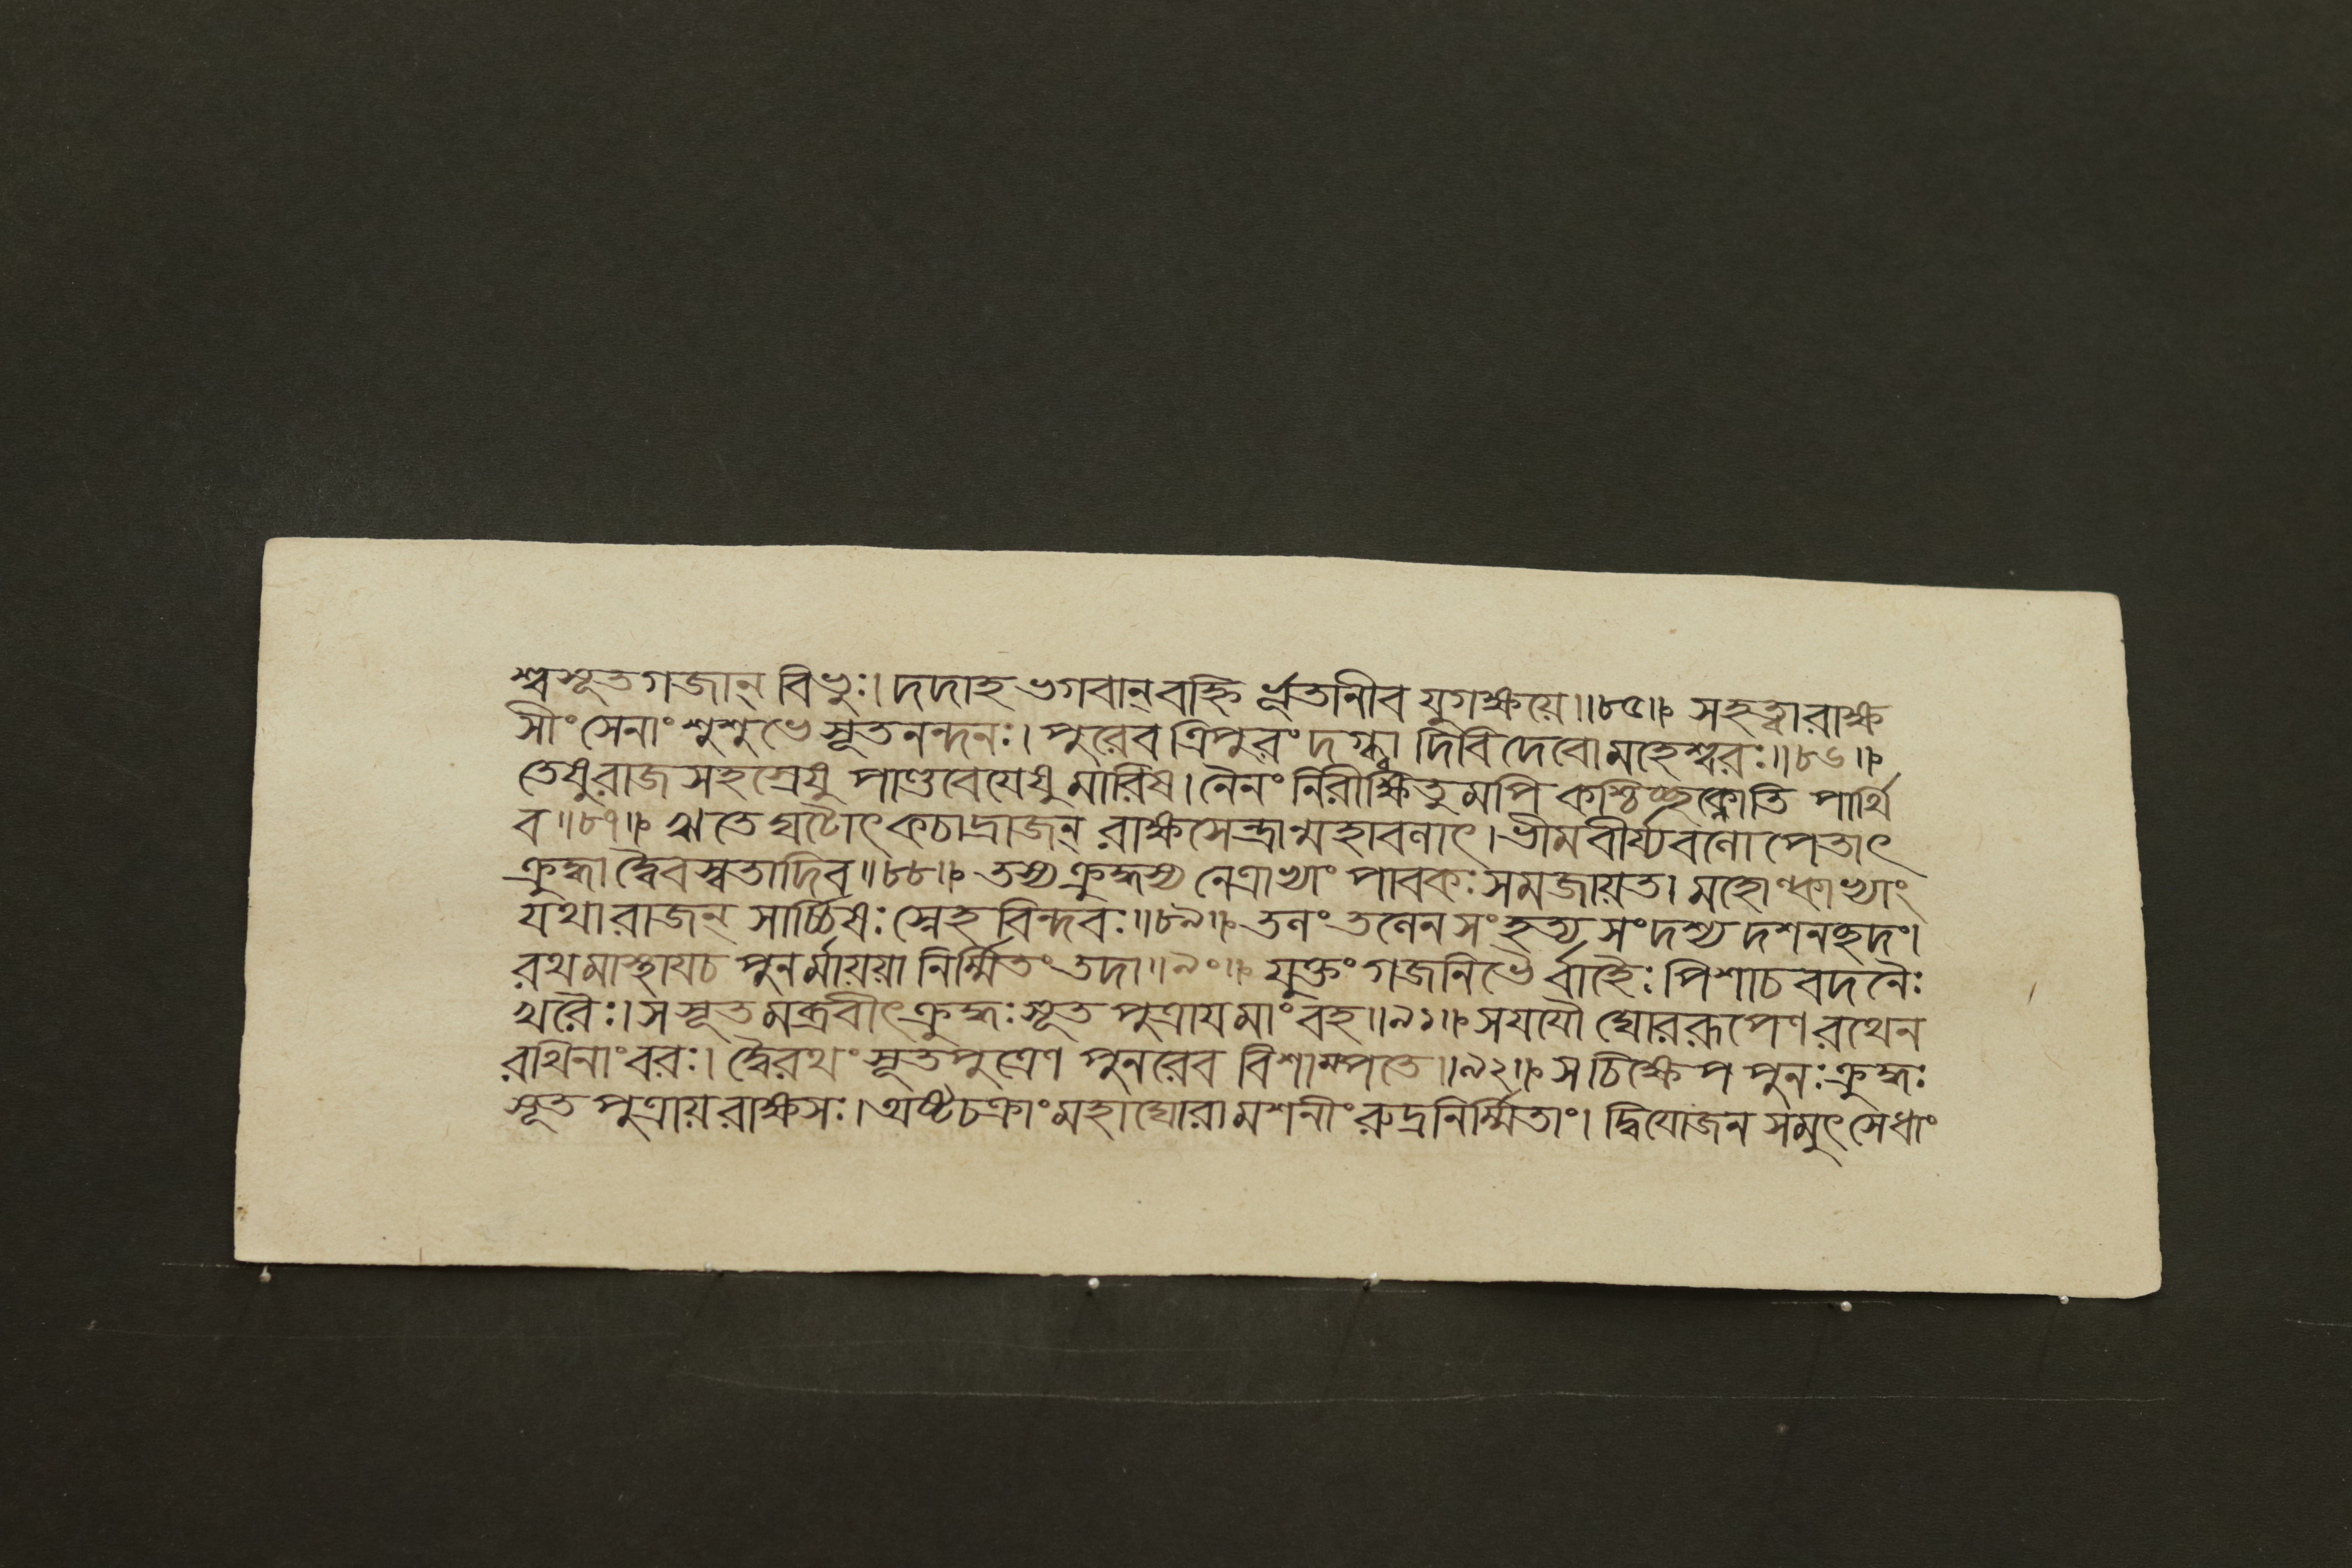 শ্বসূতগজান্ বিভুঃ। দদাহ ভগবান্ বহ্নির্ভূতানীব যুগক্ষয়ে॥৮৫॥ সহত্বা রাক্ষ
সীং সেনাং শুশুভে সূতনন্দনঃ। পুরেব ত্রিপুরং দগ্ধ্বা দিবি দেবো মহেশ্বরঃ॥৮৬॥
তেষুরাজ সহস্রেষু পাণ্ডবেয়েষু মারিষ। নৈনং নিরীক্ষিতুমপি কশ্চিচ্ছক্নোতি পার্থি
ব॥৮৭॥ ঋতে ঘটোৎকচাদ্রাজন্ রাক্ষসেন্দ্রান্মহাবলাৎ। ভীমবীর্য্যবলোপেতাৎ
ক্রুদ্ধাদ্বৈবস্বতাদিব॥৮৮॥ তস্য ক্রুদ্ধস্য নেত্রাভ্যাং পাবকঃ সমজায়ত। মহোল্কাভ্যাং
যথা রাজন্ সার্চ্চিষঃ স্নেহবিন্দবঃ॥৮৯॥ তলং তলেন সংহৃত্য সংদশ্য দশনচ্ছদং।
রথমাস্থায় চ পুনর্মায়য়া নির্ম্মিতং তদা॥৯০॥ যুক্তং গজনিভৈর্বাহৈঃ পিশাচবদনৈঃ
খরৈঃ। স সূতমব্রবীৎ ক্রুদ্ধঃ সূতপুত্রায় মাং বহ॥৯১॥ স যযৌ ঘোররূপেণ রথেন
রথিনাং বরঃ। দ্বৈরথং সূতপুত্রেণ পুনরেব বিশাম্পতে॥৯২॥ স চিক্ষেপ পুনঃ ক্রুদ্ধঃ
সূতপুত্রায় রাক্ষসঃ। অষ্টচক্রাং মহাঘোরামশনীং রুদ্রনির্ম্মিতাং। দ্বিযোজনসমুৎসেধাং